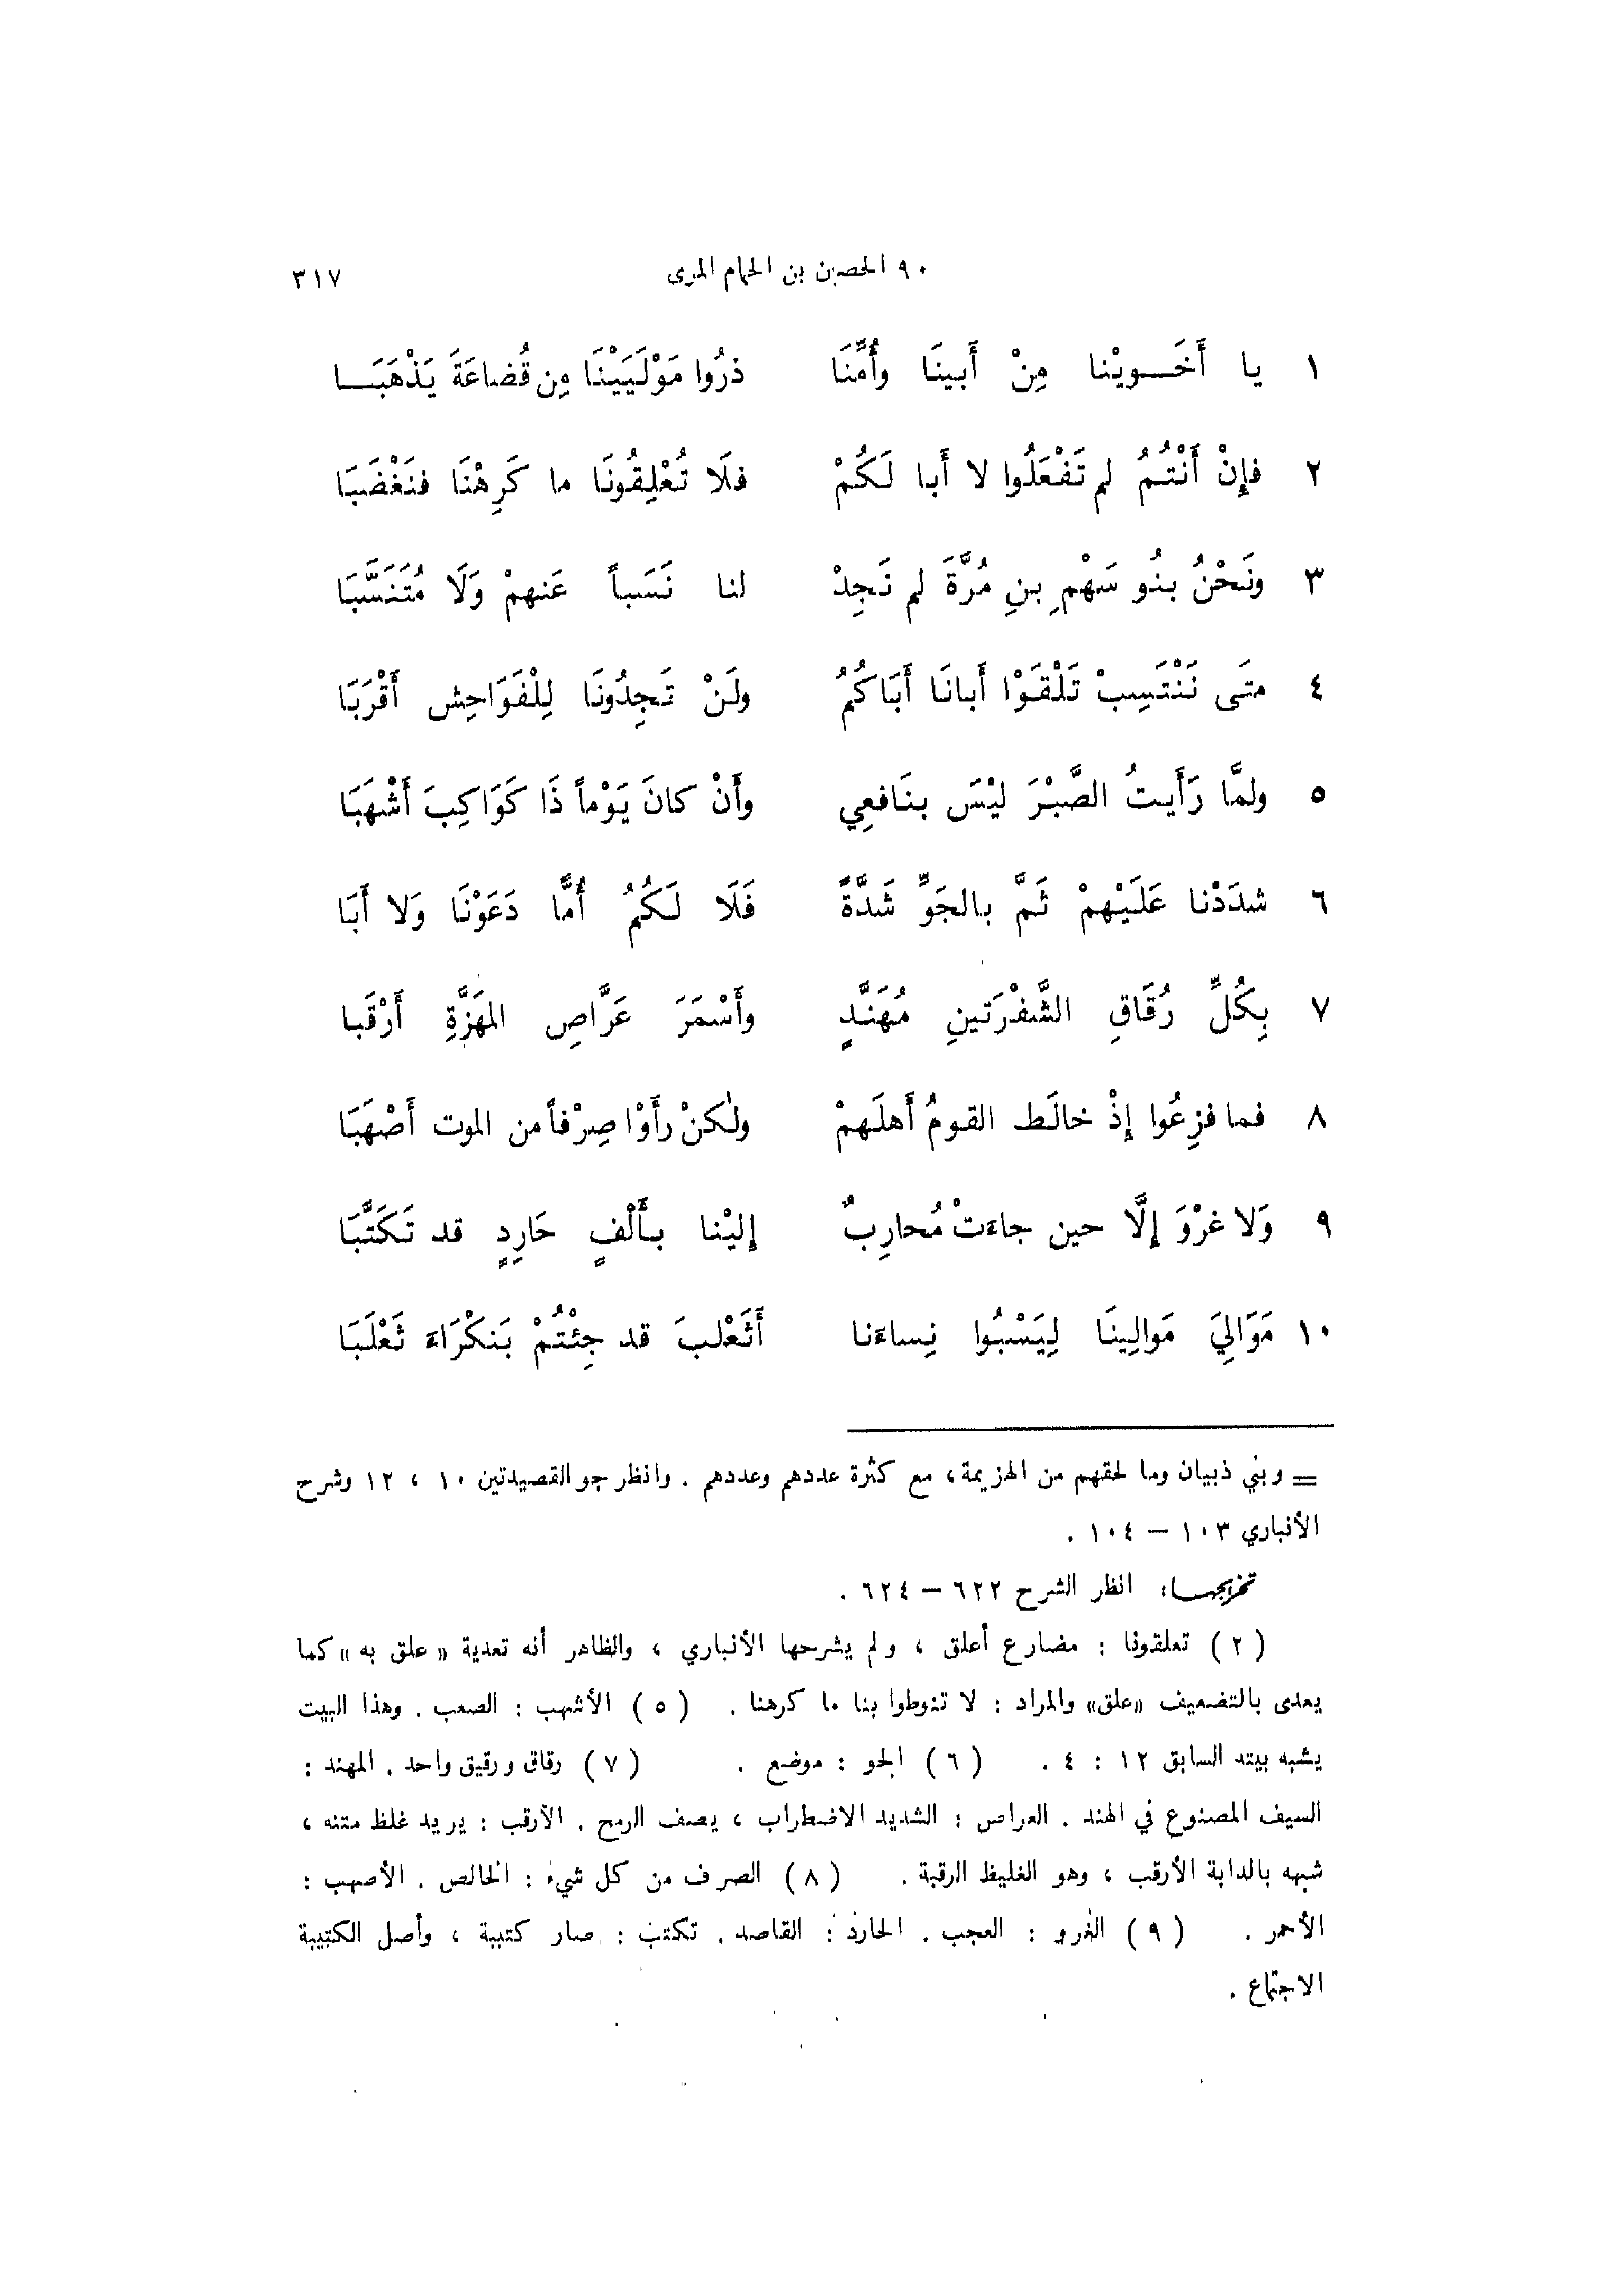 ٩٠ الحصين بن الحمام المرى ٣١٧
١ يا أَخَـــويْنا مِنْ أَبينَا وأُمِّنَا ذرُوا مَوْلَيَيْنَا مِن قُضاعَةَ يَذْهَبَـــا
٢ فإِنْ أَنْتُمُ لم تَفْعَلُوا لا أَبا لَكُمْ فلَا تُعْلِقُونَا ما كَرِهْنَا فنَغْضَبَا
٣ ونَحْنُ بنُو سَهْمِ بنِ مُرَّةَ لم نَجِدْ لنا نَسَباً عَنهمْ وَلَا مُتَنَسَّبَا
٤ متَى نَنْتَسِبْ تَلْقَوْا أَبانَا أَبَاكُمُ ولَنْ تَجِدُونَا لِلْفَوَاحِش أَقْرَبَا
٥ ولمَّا رَأَيتُ الصَّبْرَ ليْسَ بنَافعِي وأَنْ كانَ يَوْماً ذَا كَوَاكِبَ أَشْهَبَا
٦ شدَدْنا عَلَيْهمْ ثَمَّ بالجَوِّ شَدَّةً فَلَا لَكُمُ أُمًّا دَعَوْنَا وَلا أَبَا
٧ بِكُلِّ رُقَاقِ الشَّفْرَتينِ مُهَنَّدٍ وأَسْمَرَ عَرَّاصِ المهَزَّةِ أَرْقَبا
٨ فما فزِعُوا إِذْ خالَط القومُ أَهلَهمْ ولٰكنْ رأَوْا صِرْفاً من الموت أَصْهَبَا
٩ وَلا غرْوَ إِلَّا حين جاءَتْ مُحارِبٌ إليْنا بأَلْفٍ حَارِدٍ قد تَكَتَّبَا
١٠ مَوَالِيَ مَوالِينَا لِيَسْبُوا نِساءَنا أَثَعْلبَ قد جِئْتُمْ بَنكْرَاءَ ثَعْلَبَا
= وبني ذبيان وما لحقهم من الهزيمة، مع كثرة عددهم وعددهم . وانظر جو القصيدتين ١٠ ، ١٢ وشرح
الأنباري ١٠٣ – ١٠٤ .
تخريجهـا: انظر الشرح ٦٢٢ – ٦٢٤ .
( ٢ ) تعلقونا : مضارع أعلق ، ولم يشرحها الأنباري ، والظاهر أنه تعدية « علق به » كما
يعدى بالتضعيف «علق» والمراد : لا تنوطوا بنا ما كرهنا . ( ٥ ) الأشهب : الصعب . وهذا البيت
يشبه بيته السابق ١٢ : ٤ . ( ٦ ) الجو : موضع . ( ٧ ) رقاق ورقيق واحد . المهند :
السيف المصنوع في الهند . العراص : الشديد الاضطراب ، يصف الرمح . الأرقب : يريد غلظ متنه ،
شبهه بالدابة الأرقب ، وهو الغليظ الرقبة . ( ٨ ) الصرف من كل شيء : الخالص . الأصهب :
الأحمر . ( ٩ ) الغرو : العجب . الحارد : القاصد . تكتب : صار كتيبة ، وأصل الكتيبة
الاجتماع .